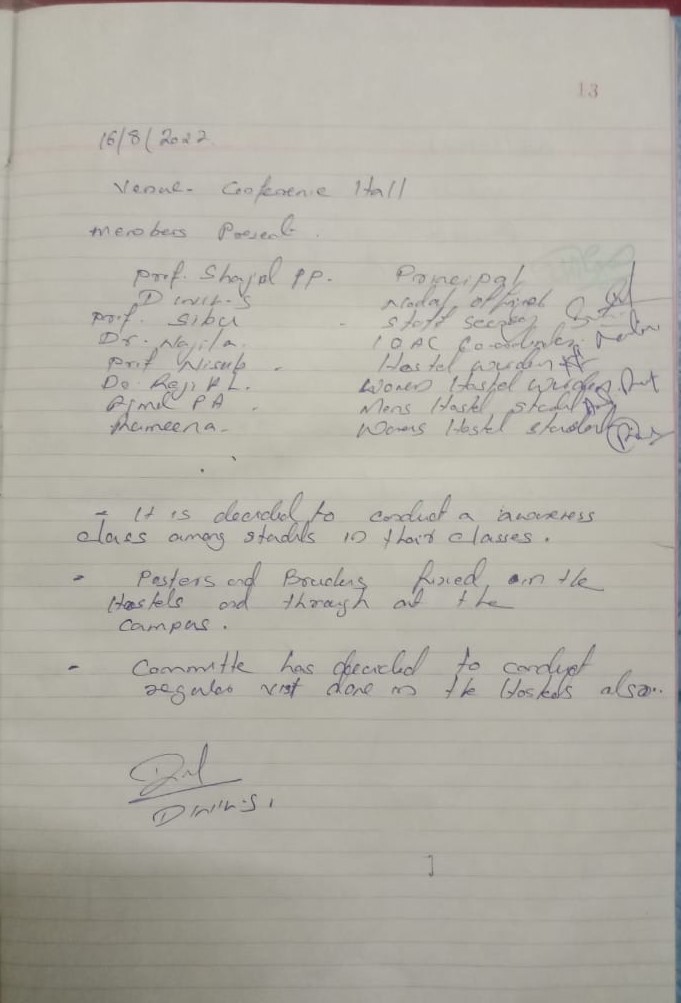 13
16/8/2022
Venue - Conference Hall
Members Present.
Prof. Shajal PP. Principal
Dinil. S Nodal officer
Prof. Sibu - Staff Secretary
Dr. Najila. IQAC Co-ordinator
Prof Nisub - Hostel warden
Dr. Reji K L. Womens Hostel Warden
Ajmal PA - Mens Hostel student
Rameena - Womens Hostel student
- It is decided to conduct a awareness
class among students in their classes.
- Posters and fixed in the
Hostels and through out the
campus.
- Committe has decided to conduct
regular visit done in the Hostels also.
Dinil. S